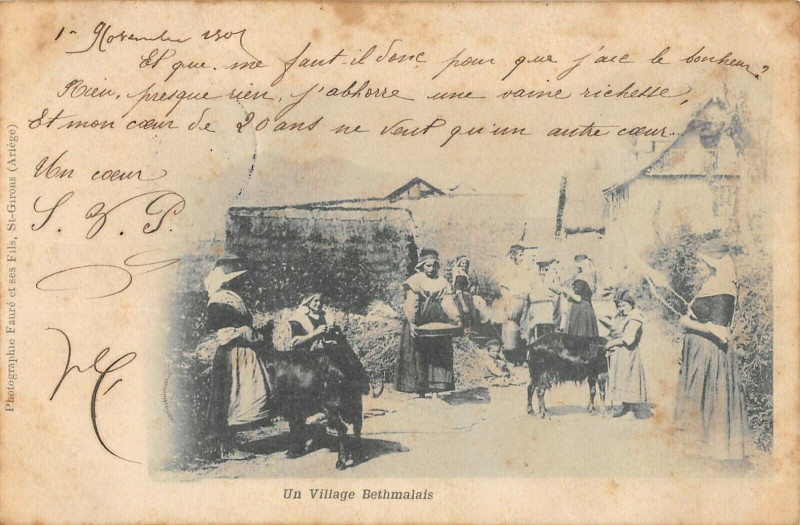 1er Novembre 1901
Et que me faut-il donc pour que j'aie le bonheur?
Rien, presque rien, j'abhorre une vaine richesse,
Et mon cœur de 20 ans ne veut qu'un autre cœur...
Un cœur
S. V. P.
Photographie Fauré et ses Fils, St-Girons (Ariège)
Un Village Bethmalais